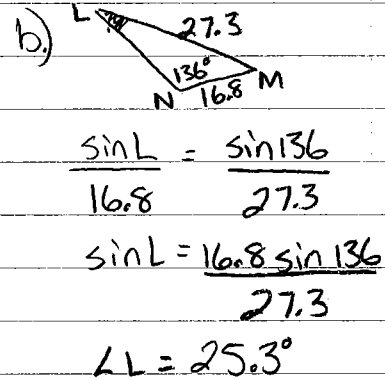 b.)
L
27.3
136°
N
16.8
M
sin L = sin 136
16.8 27.3
sin L = 16.8 sin 136
27.3
∠L = 25.3°